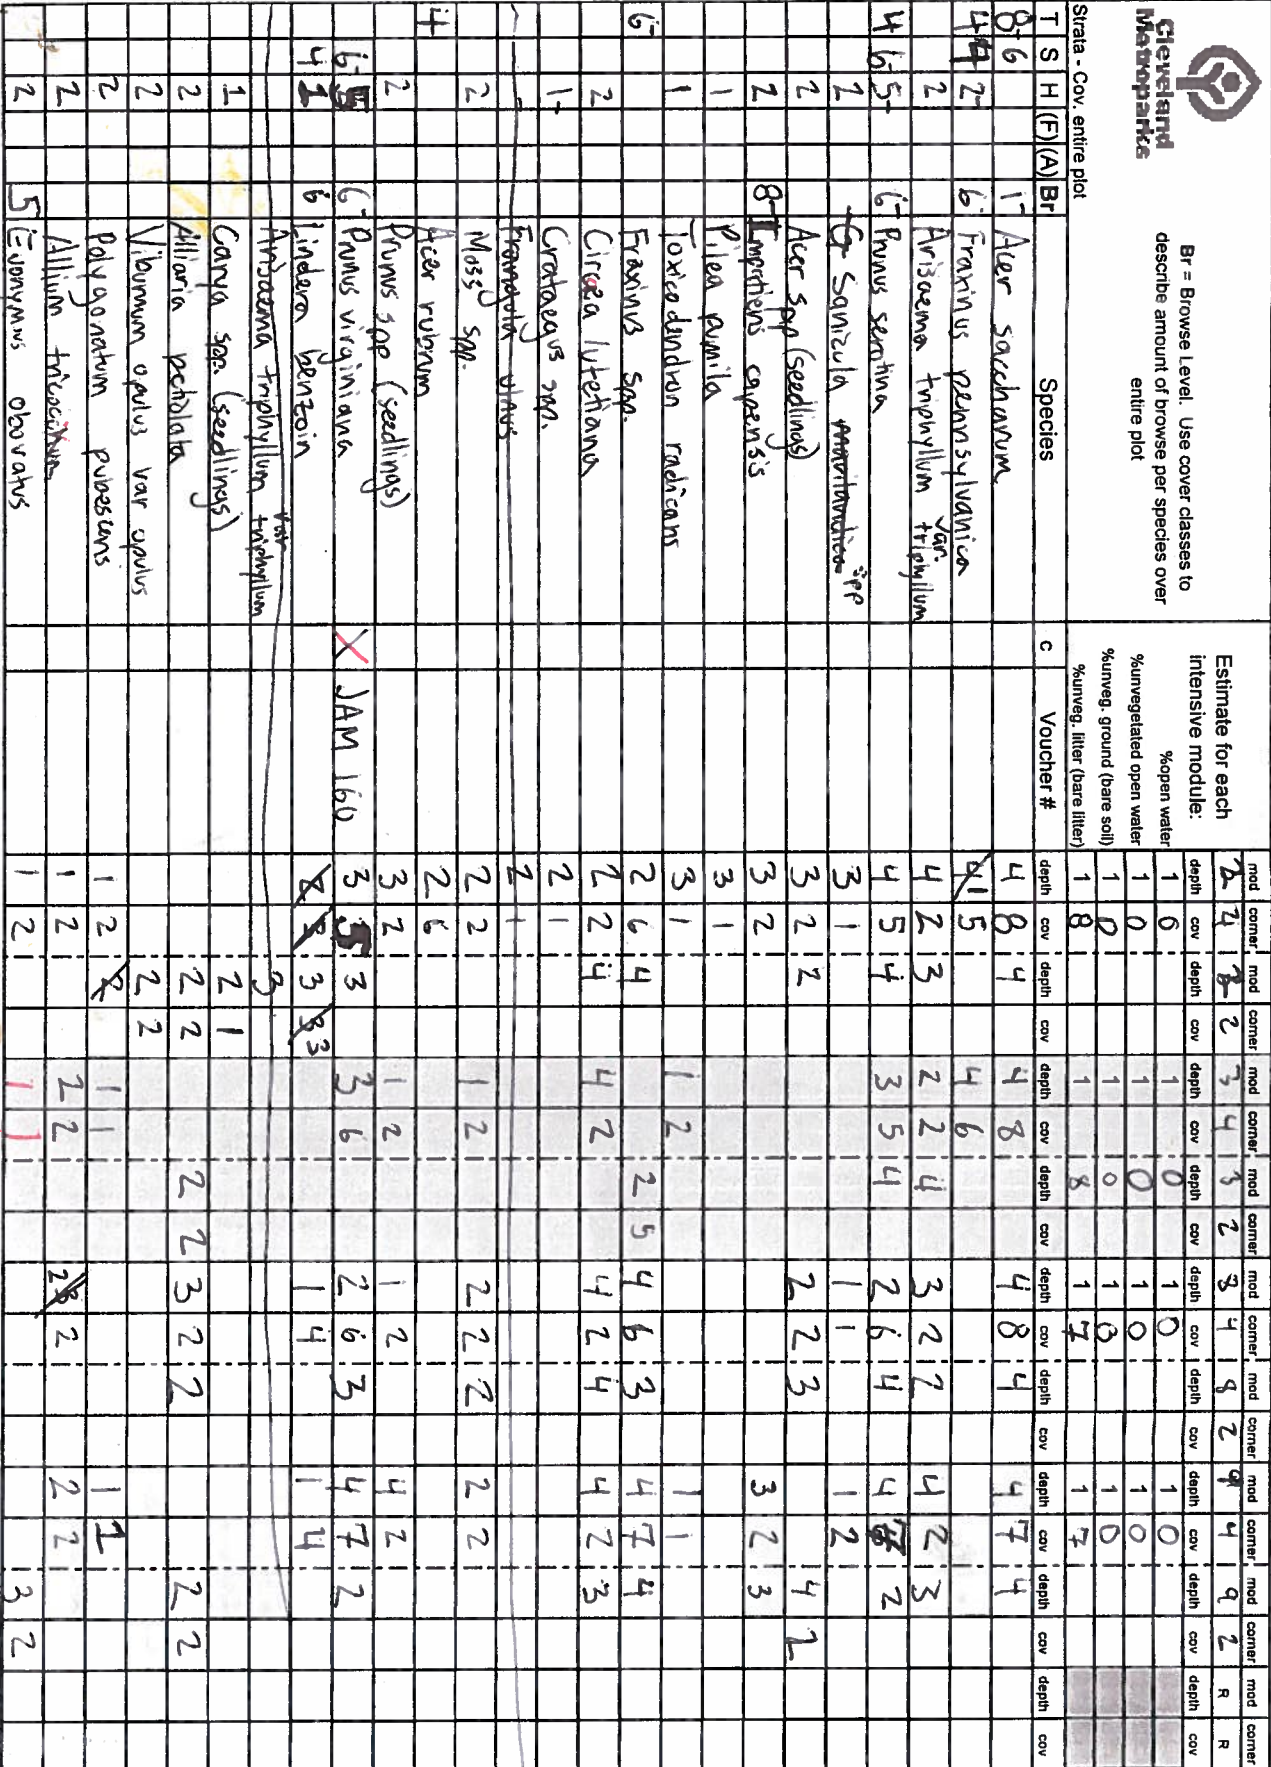 Cleveland Metroparks
Br = Browse Level. Use cover classes to describe amount of browse per species over entire plot
Estimate for each intensive module:
mod corner mod corner mod corner mod corner mod corner mod corner mod corner mod corner mod corner
2 4 2 2 3 4 3 2 8 4 8 2 9 4 9 2 R R
depth cov depth cov depth cov depth cov depth cov depth cov depth cov depth cov depth cov
%open water 1 0 1 0 1 0 1 0
%unvegetated open water 1 0 1 0 1 0 1 0
%unveg. ground (bare soil) 1 0 1 0 1 0 1 0
%unveg. litter (bare litter) 1 8 1 8 1 7 1 7
Strata - Cov. entire plot
T S H (F) (A) Br Species c Voucher # depth cov depth cov depth cov depth cov depth cov depth cov depth cov depth cov depth cov
8- 6 1- Acer saccharum 4 8 4 4 8 4 8 4 4 7 4
4 2- 6- Fraxinus pennsylvanica 1 5 4 6
2 Arisaema triphyllum var. triphyllum 4 2 3 2 2 4 3 2 2 4 2 3
4 6- 5- 6- Prunus serotina 4 5 4 3 5 4 2 6 4 4 2
2 Sanicula marilandica spp 3 1 1 1 1 2
2 Acer spp (seedlings) 3 2 2 2 2 3 4 2
2 8- Impatiens capensis 3 2 3 2 3
1 Pilea pumila 3 1
1 Toxicodendron radicans 3 1 1 2 1 1
6- Fraxinus spp. 2 6 4 2 5 4 6 3 4 7 4
2 Circaea lutetiana 2 2 4 4 2 4 2 4 4 2 3
1- Crataegus spp. 2 1
Frangula alnus 2 1
2 Moss spp. 2 2 1 2 2 2 2 2 2
4 Acer rubrum 2 6
2 Prunus spp (seedlings) 3 2 1 2 1 2 4 2
6- 5 6- Prunus virginiana X JAM 160 3 5 3 3 6 2 6 3 4 7 2
4 1 6 Lindera benzoin 3 3 1 4 1 4
Arisaema triphyllum var triphyllum 3
1 Carya spp. (seedlings) 2 1
2 Alliaria petiolata 2 2 2 2 3 2 2 2 2
2 Viburnum opulus var opulus 2 2
2 Polygonatum pubescens 1 2 1 1 1 1
2 Allium tricoccum 1 2 2 2 2 2 2 2
2 5 Euonymus obovatus 1 2 1 1 3 2